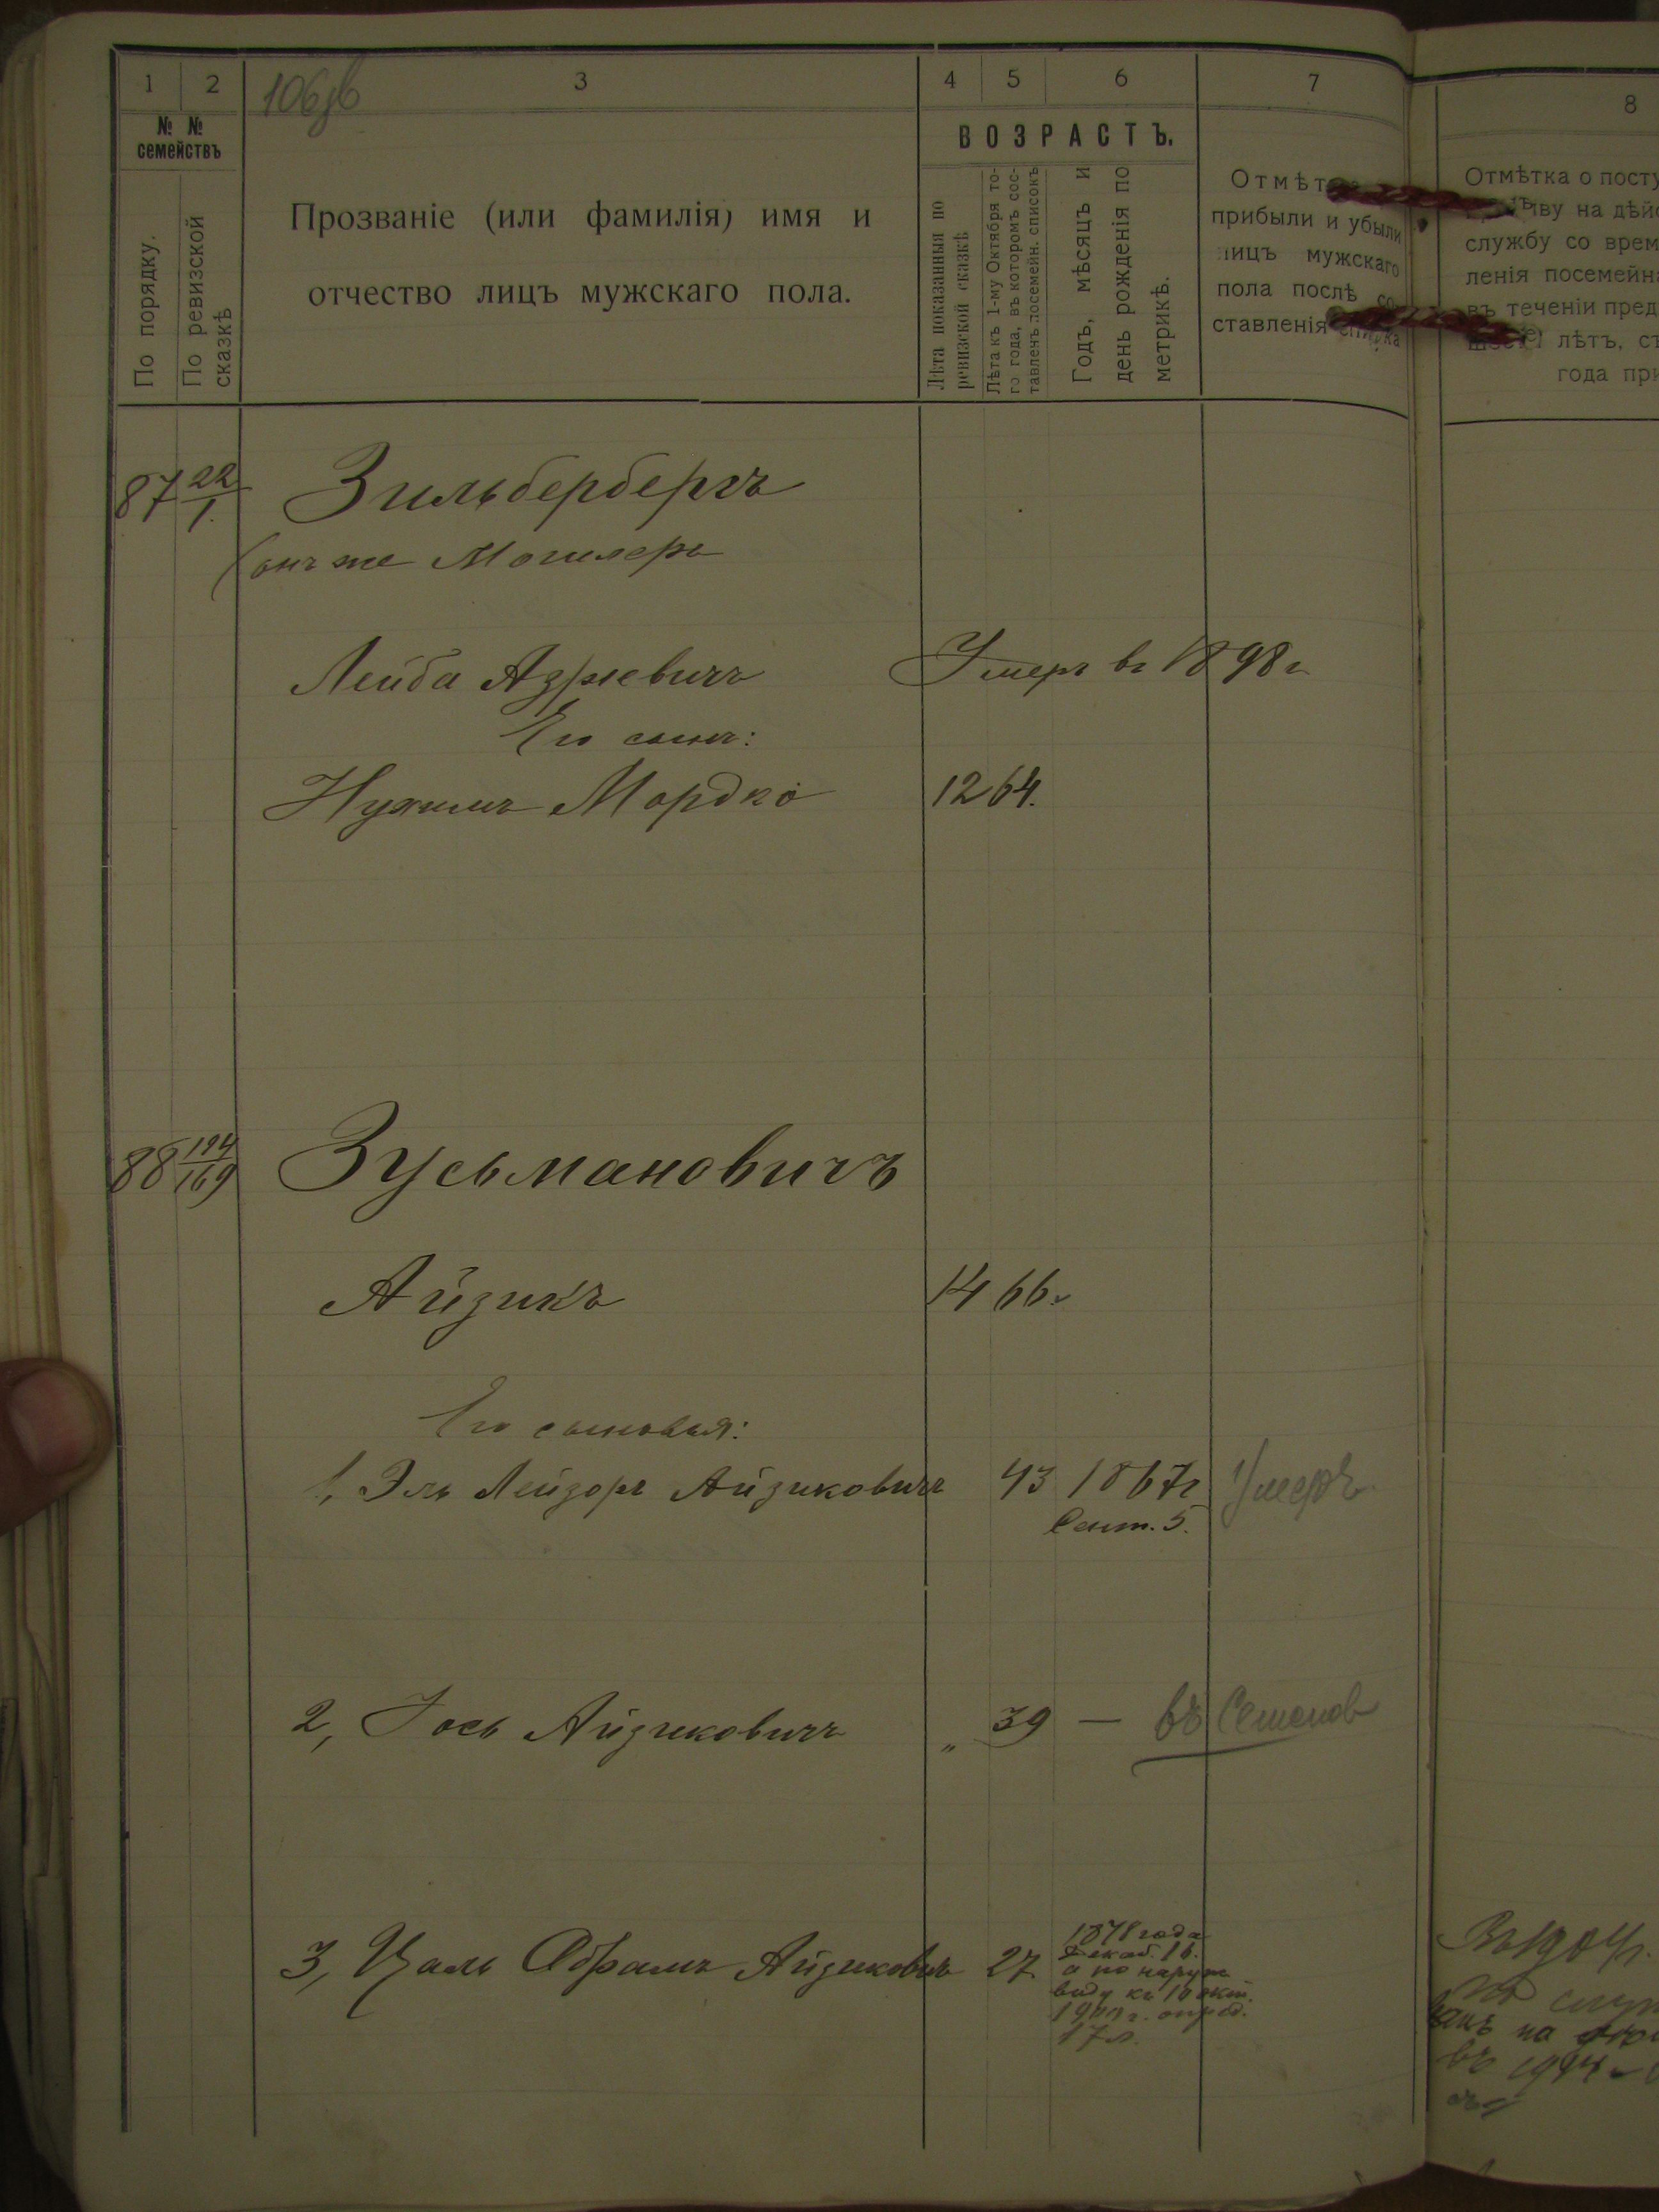 1 2 3 4 5 6 7
№ № семействъ
По порядку.
По ревизской сказкѣ
Прозваніе (или фамилія) имя и
отчество лицъ мужскаго пола.
ВОЗРАСТЪ.
Лѣта показанныя по
ревизской сказкѣ
Лѣта къ 1-му Октября то-
го года, въ которомъ сос-
тавленъ посемейн. списокъ
Годъ, мѣсяцъ и
день рожденія по
метрикѣ.
прибыли и убыли
лицъ мужскаго
пола послѣ со
ставленія списка
8
Отмѣтка о посту
иву на дѣйс
службу со врем
ленія посемейна
въ теченіи пред
лѣтъ, съ
года при
87 22/1. Зильбербергъ
(онъ же Могилеръ
Лейба Азріевичъ Умеръ въ 1898 г
Его сынъ:
Нухимъ Мордко 12 64.
88 194/169 Зусьмановичъ
Айзикъ 14 66.
Его сыновья:
1, Эль Лейзоръ Айзиковичъ 43 1867г Умеръ
Сент. 5.
2, Іось Айзиковичъ „ 39 — въ Семенов
3, Цаль Абрамъ Айзиковичъ 27
1878 года
Декаб. 16.
а по наруж
виду къ 1 окт.
1900 г. опред.
17 л.
Въ 1904г.
на
въ